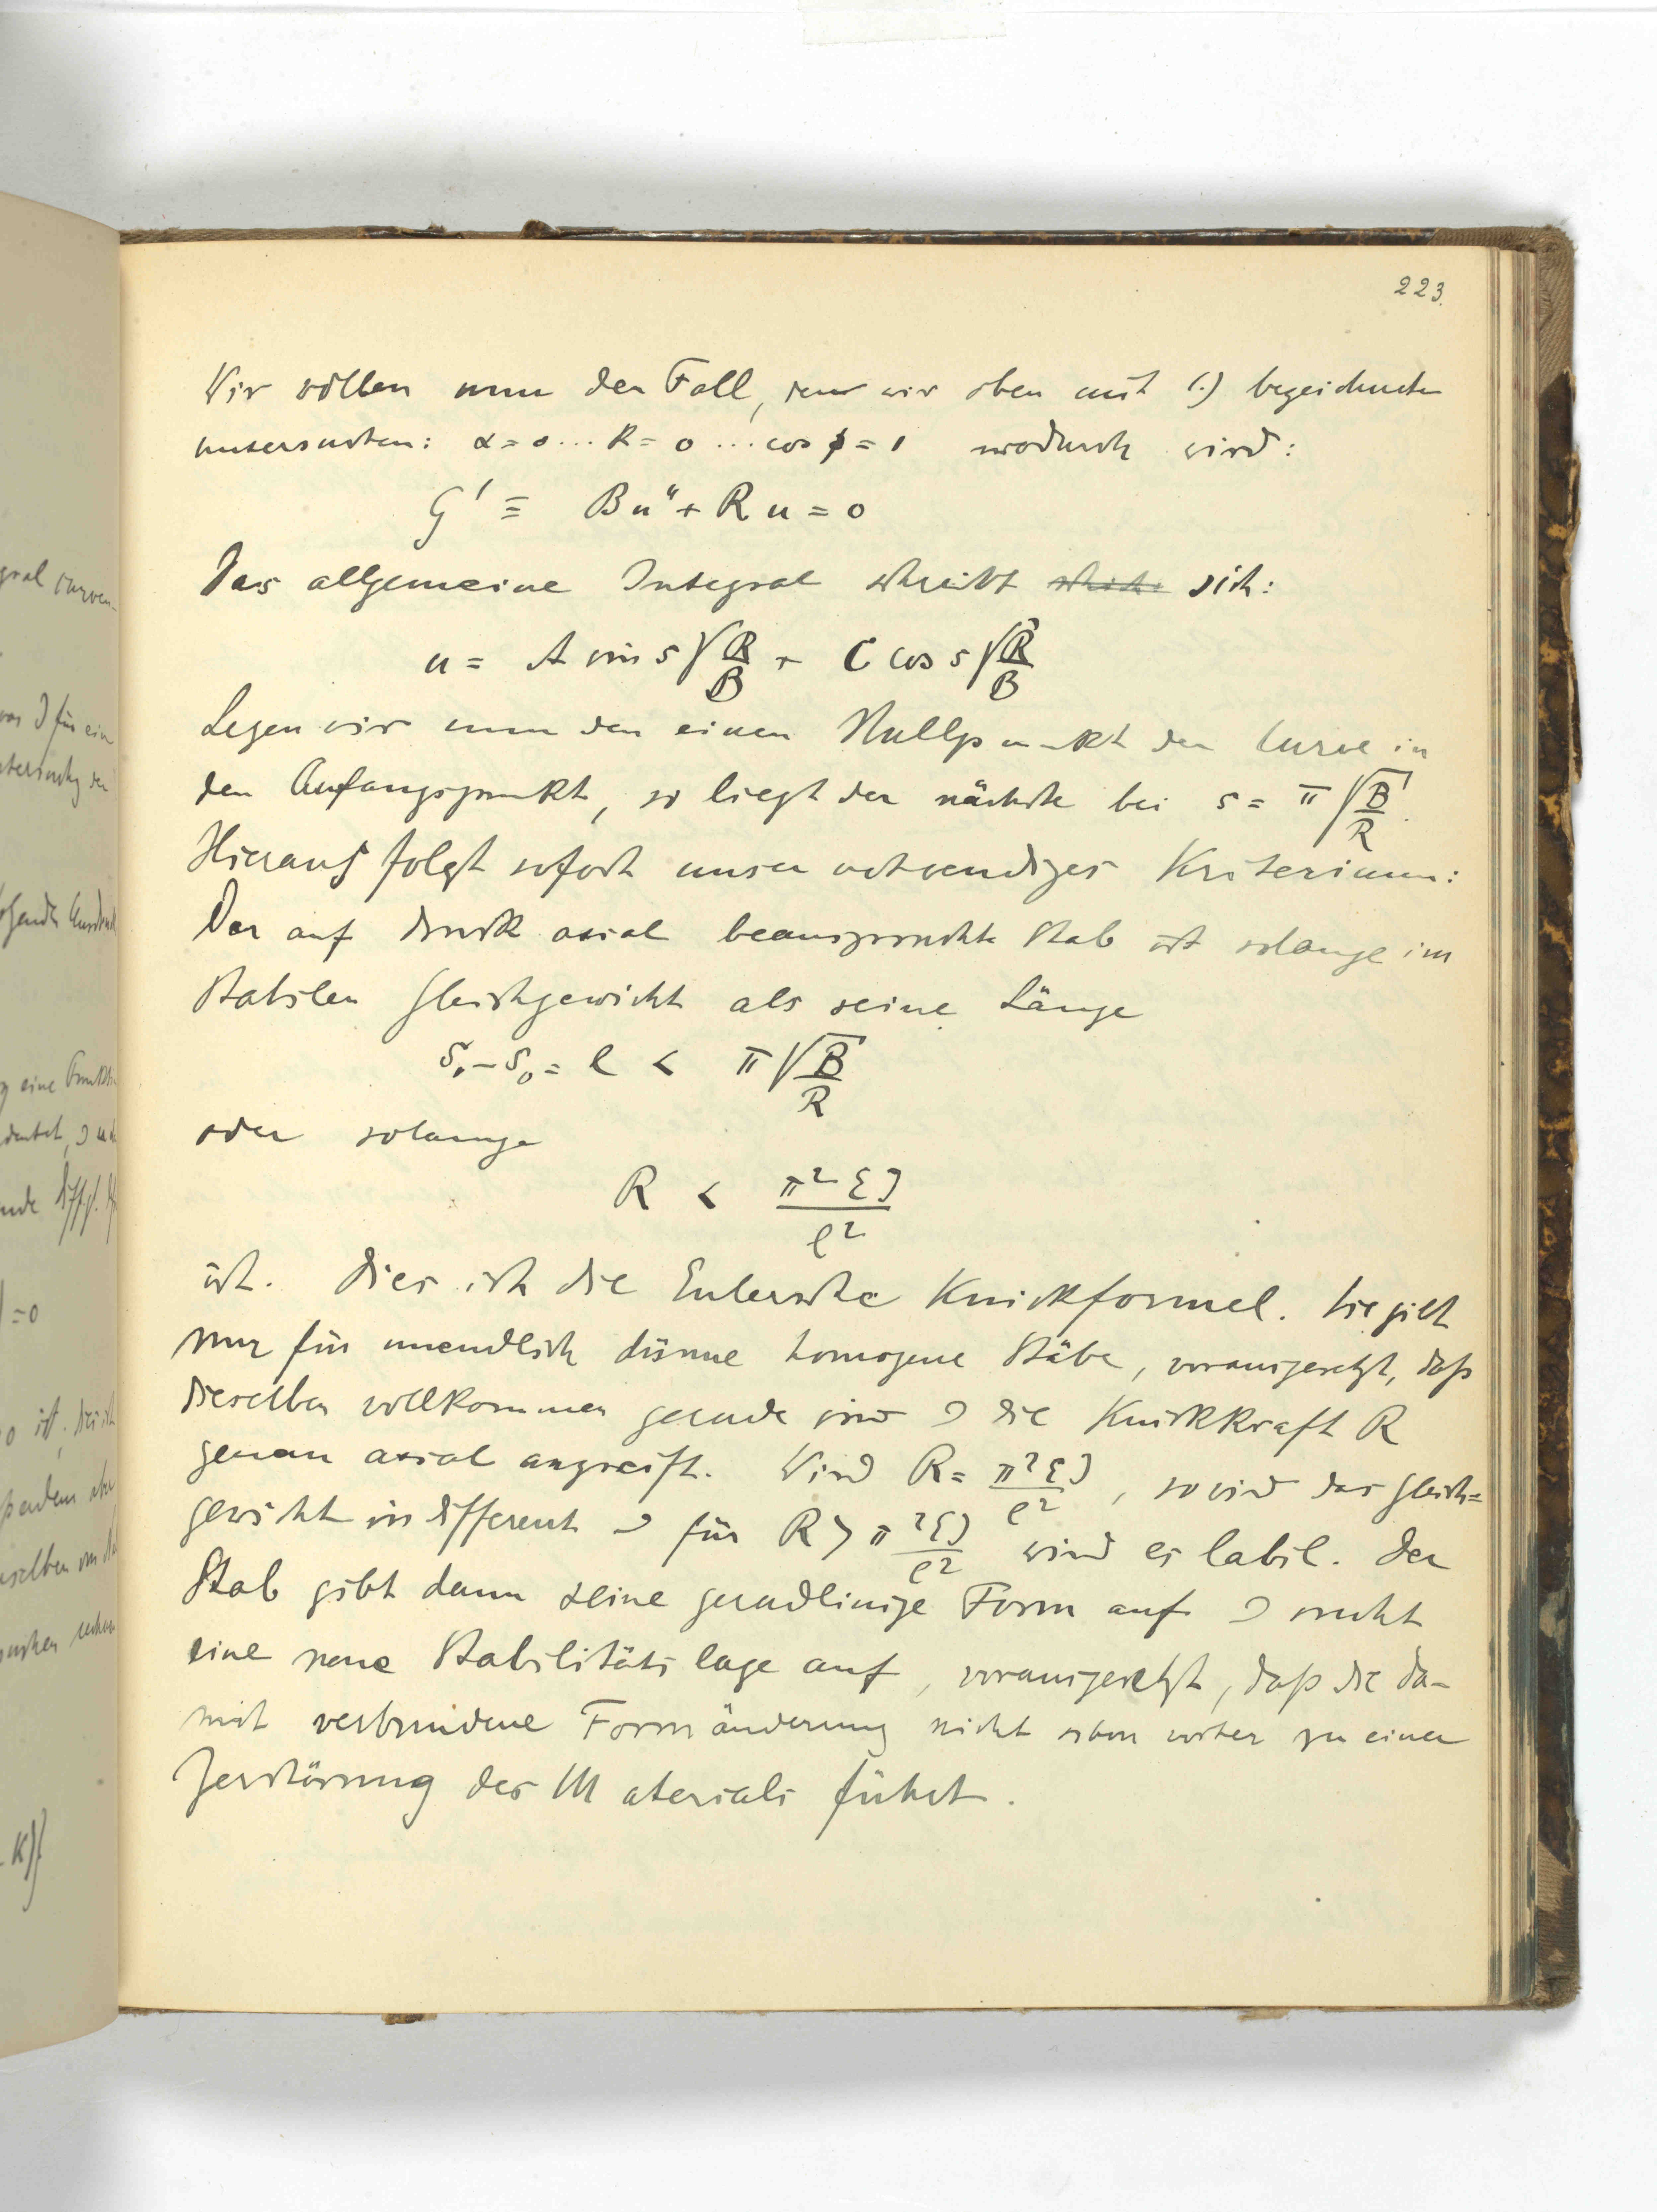 223.
Wir wollen nun den Fall, den wir oben mit 1.) bezeichneten
untersuchen: α = 0 ... k = 0 ... cos ϕ = 1 wodurch wird:
G' ≡ Bu'' + Ru = 0
Das allgemeine Integral schreibt sich:
u = A sin s √R/B + C cos s √R/B
Legen wir nun den einen Nullpunkt der Curve in
den Anfangspunkt, so liegt der nächste bei s = π √B/R.
Hieraus folgt sofort unser notwendiges Kriterium:
Der auf Druck axial beanspruchte Stab ist solange im
stabilen Gleichgewicht als seine Länge
s₁ - s₀ = l < π √B/R
oder solange
R < π² EJ / l²
ist. Dies ist die Eulersche Knickformel. Sie gilt
nur für unendlich dünne homogene Stäbe, vorausgesetzt, daß
dieselben vollkommen gerade sind & die Knickkraft R
genau axial angreift. Wird R = π² EJ / l², so wird das Gleich=
gewicht indifferent & für R > π² EJ / l² wird es labil. Der
Stab gibt dann seine geradlinige Form auf & sucht
eine neue Stabilitätslage auf, vorausgesetzt, daß die da-
mit verbundene Formänderung nicht schon vorher zu einer
Zerstörung des Materials führt.